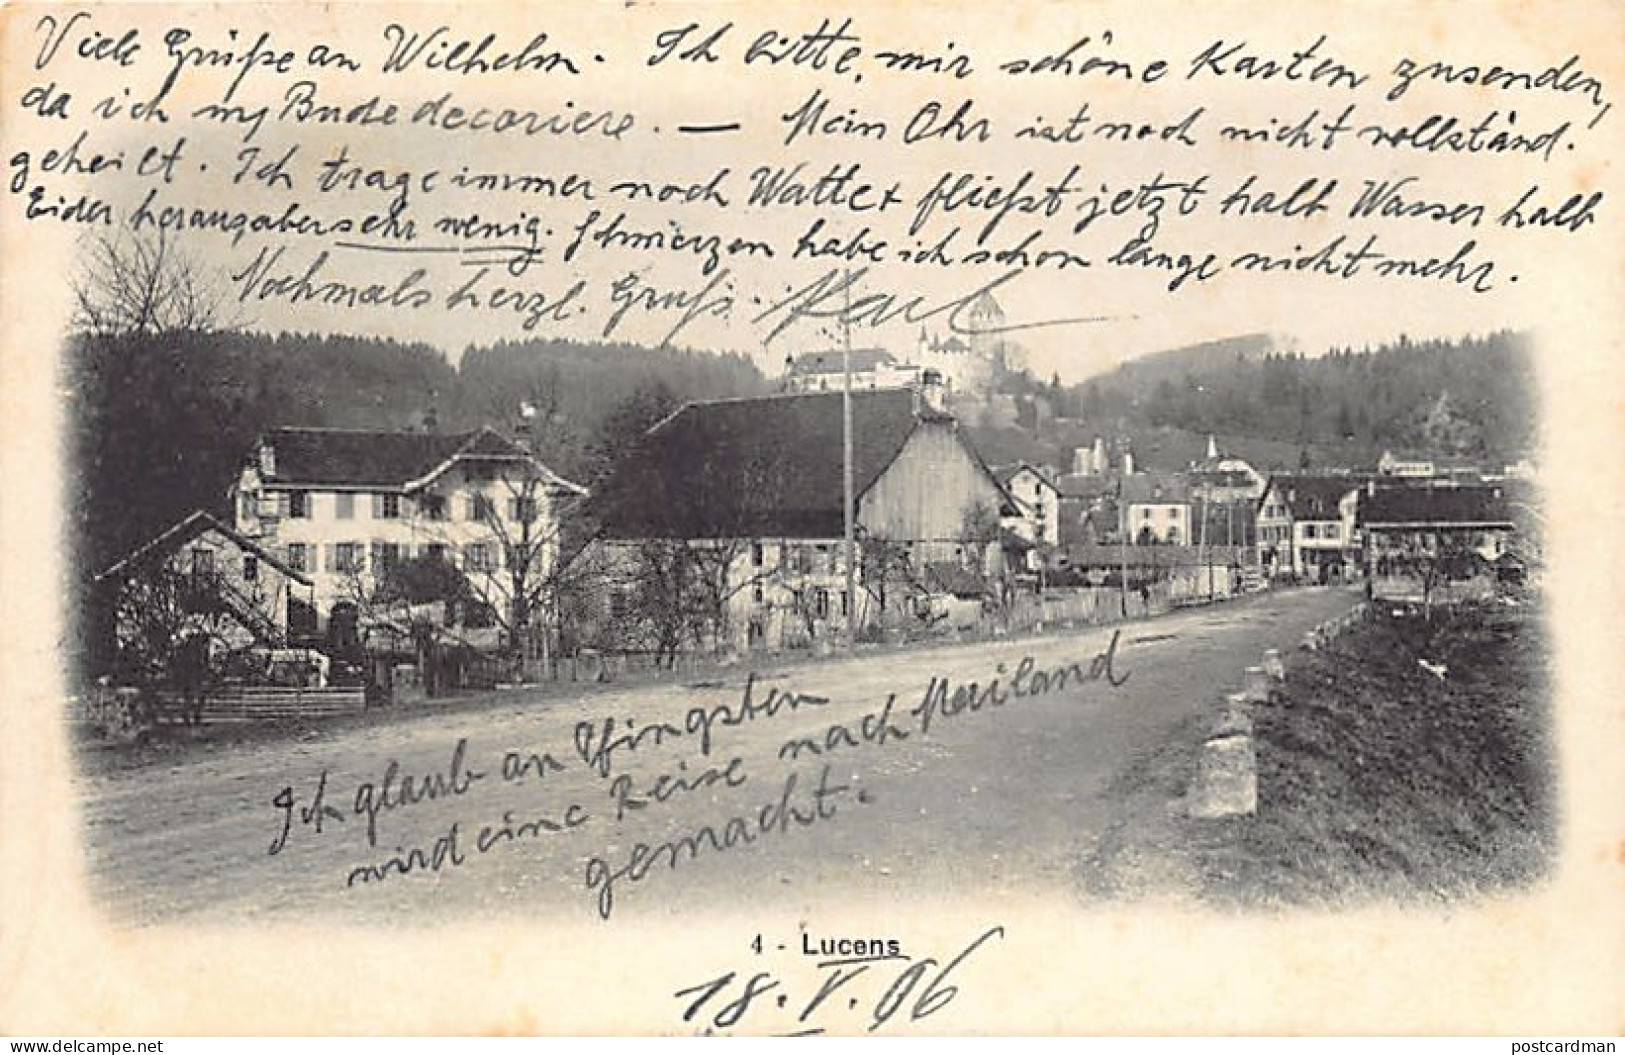 Viele Grüße an Wilhelm. Ich bitte, mir schöne Karten zusenden,
da ich my Bude decoriere. — Mein Ohr ist noch nicht vollständ.
geheilt. Ich trage immer noch Watte & fließt jetzt halb Wasser halb
Eider heraus, aber sehr wenig. Schmerzen habe ich schon lange nicht mehr.
Nochmals herzl. Gruß. Karl
Ich glaub an Pfingsten
wird eine Reise nach Mailand
gemacht.
4 - Lucens
18. V. 06
delcampe.net
postcardman